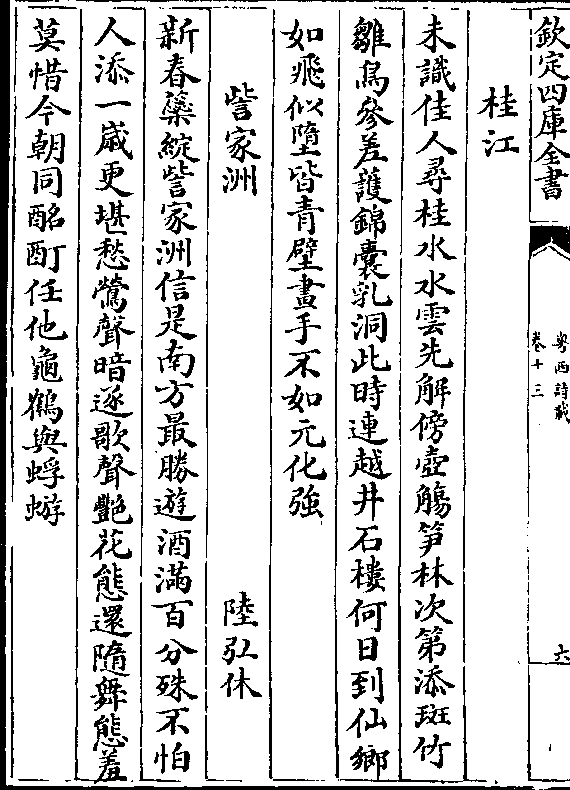 欽定四庫全書
粤西詩載
卷十三
六
桂江
未識佳人尋桂水水雲先解傍壺觴笋林次第添斑竹
雛鳥參差護錦囊乳洞此時連越井石樓何日到仙鄉
如飛似墮皆青壁畫手不如元化強
訾家洲
陸弘休
新春蘂綻訾家洲信是南方最勝遊酒滿百分殊不怕
人添一歲更堪愁鶯聲暗逐歌聲艷花態還隨舞態羞
莫惜今朝同酩酊任他龜鶴與蜉蝣